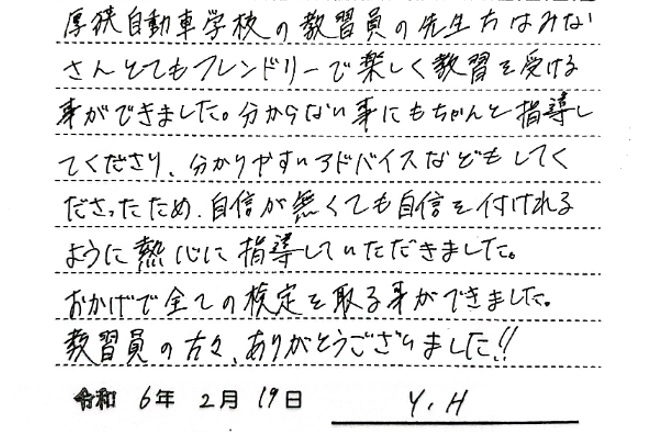 厚狭自動車学校の教習員の先生方はみな
さんとてもフレンドリーで楽しく教習を受ける
事ができました。分からない事にもちゃんと指導し
てくださり、分かりやすいアドバイスなどもしてく
ださったため、自信が無くても自信を付けれる
ように熱心に指導していただきました。
おかげで全ての検定を取る事ができました。
教習員の方々、ありがとうございました!!
令和 6年 2月 19日 Y.H